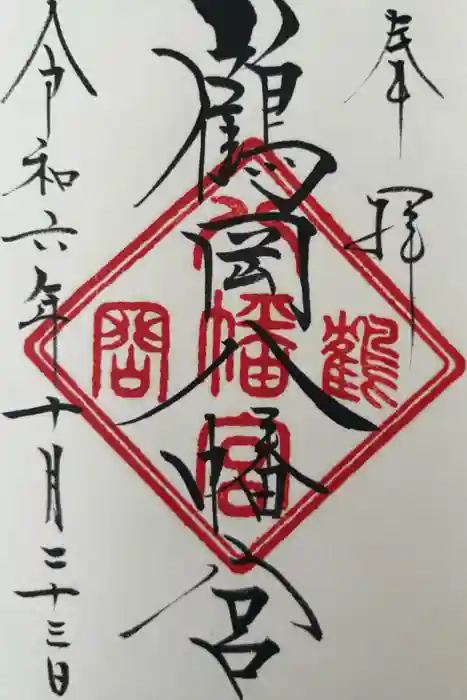 奉拝
鶴岡八幡宮
令和六年十月二十三日
鶴
八幡宮
岡